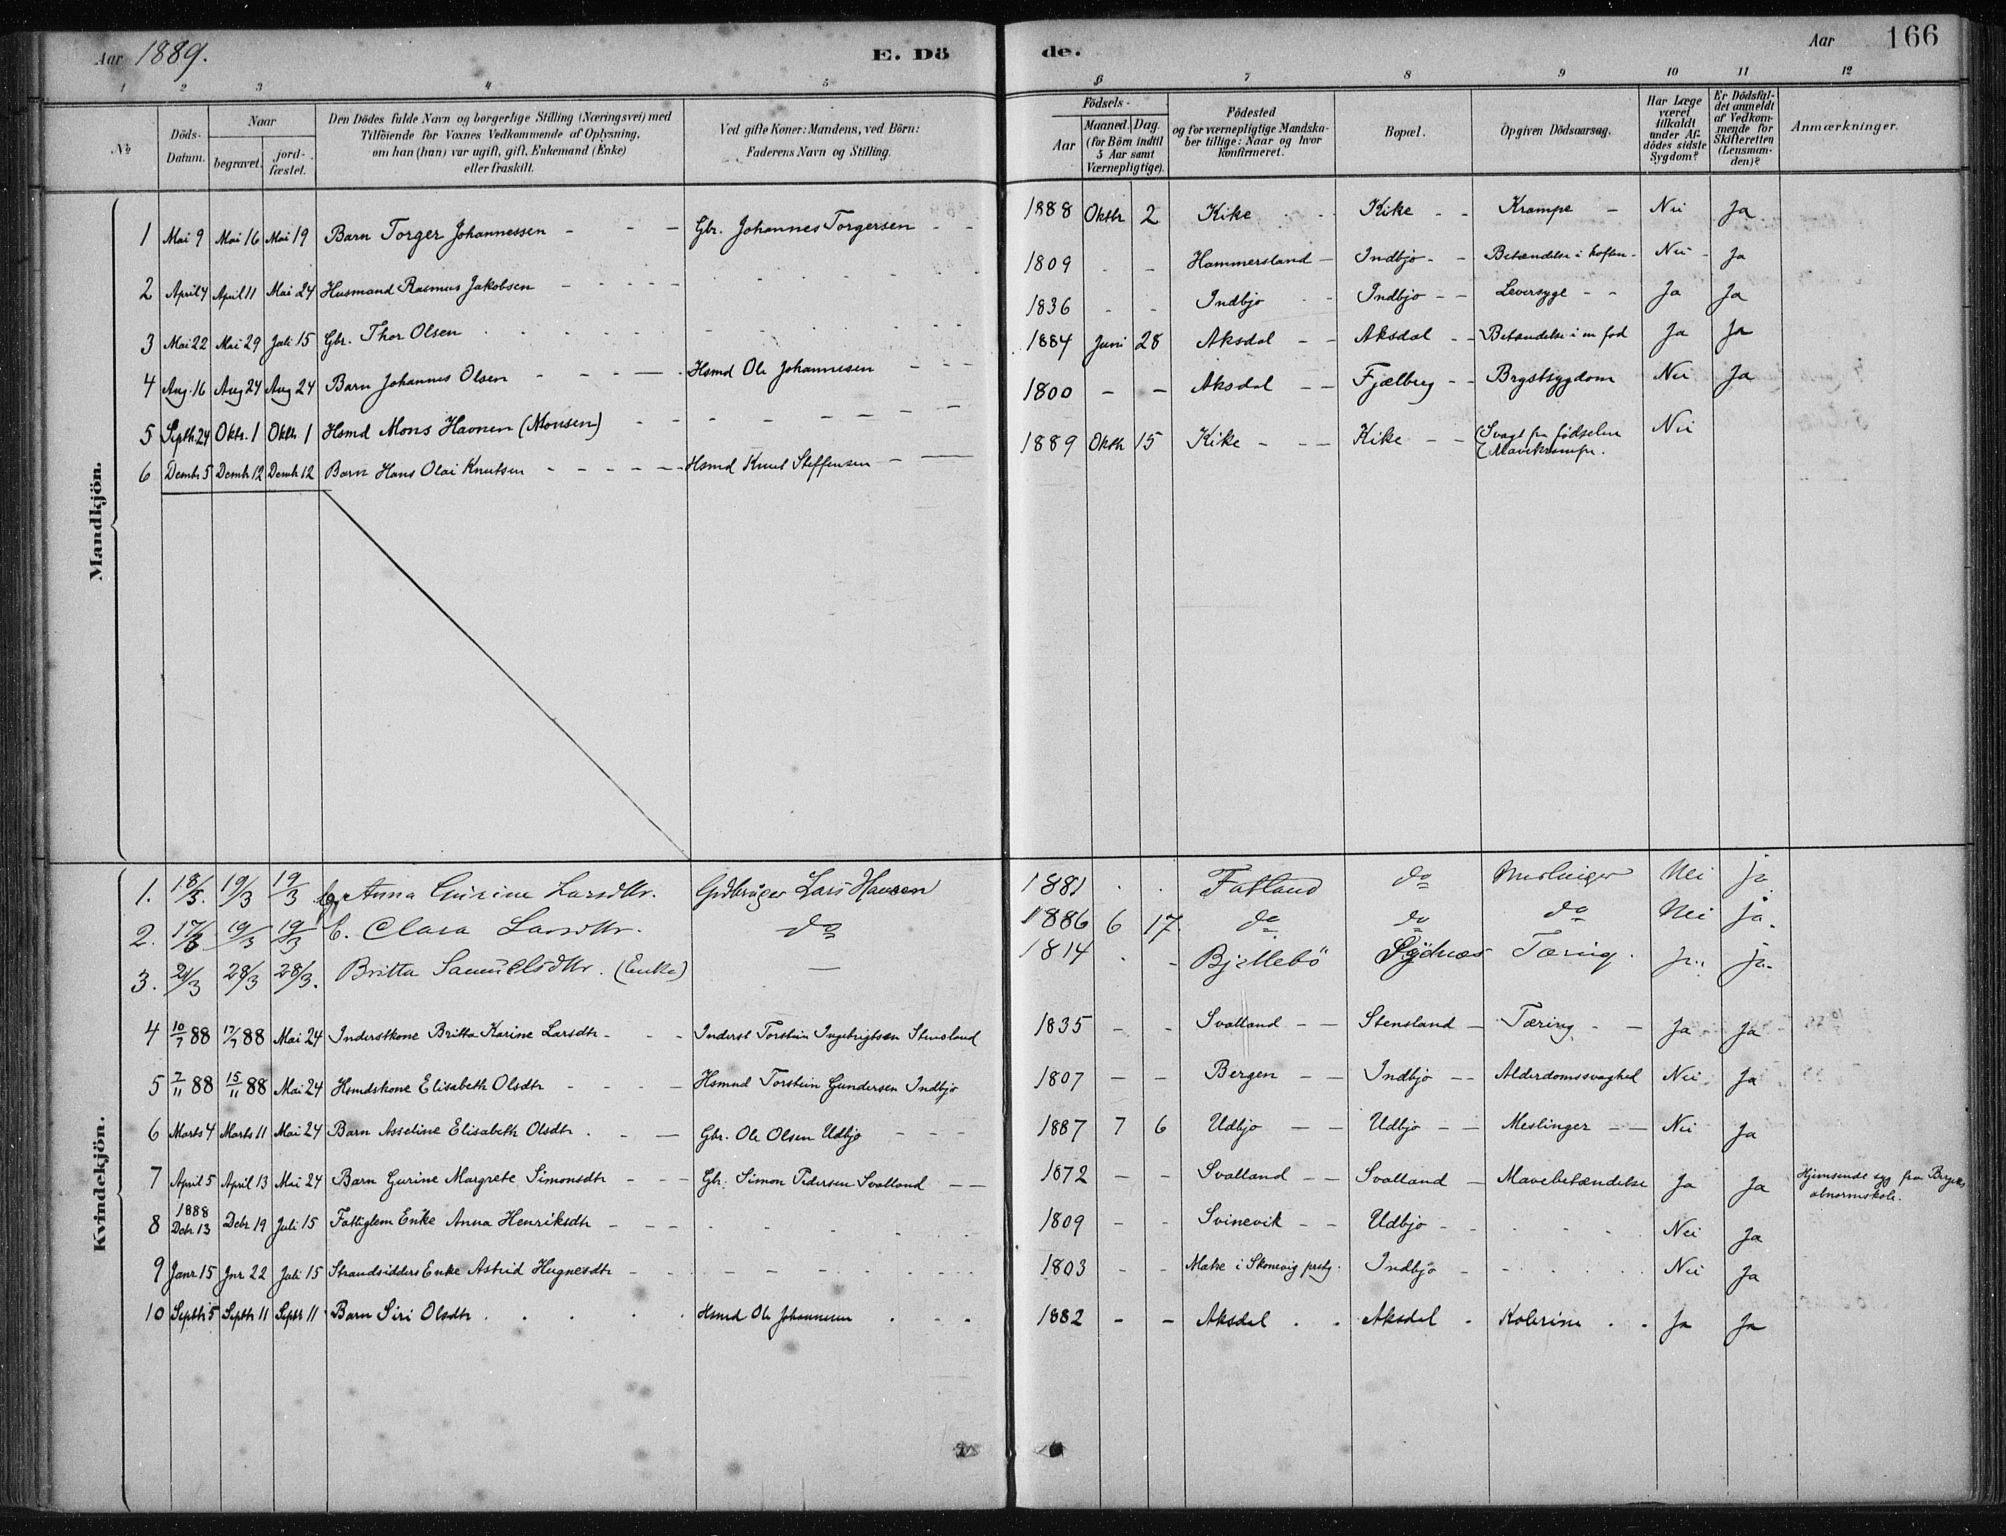 Aar 1889. E. Dö de. Aar 166
1 2 3 4 5 6 7 8 9 10 11 12
No
Döds-Datum.
Naar
begravet. jord-fæstet.
Den Dödes fulde Navn og borgerlige Stilling (Næringsvei) med
Tilföiende for Voxnes Vedkommende af Oplysning,
om han (hun) var ugift, gift, Enkemand (Enke)
eller fraskilt.
Ved gifte Koner: Mandens, ved Börn:
Faderens Navn og Stilling.
Födsels-
Aar Maaned. Dag.
(for Börn indtil
5 Aar samt
Værnepligtige).
Födested
og for værnepligtige Mandska-
ber tillige: Naar og hvor
konfirmeret.
Bopæl.
Opgiven Dödsaarsag.
Har Læge
været
tilkaldt
under Af-
dödes sidste
Sygdom?
Er Dödsfal-
det anmeldt
af Vedkom-
mende for
Skifteretten
(Lensman-
den)?
Anmærkninger.
Mandkjön.
1 Mai 9 Mai 16 Mai 19 Barn Torger Johannessen - - - Gbr. Johannes Torgersen - - 1888 Oktbr 2 Kike - - Kike - - Krampe - Nei Ja
2 April 4 April 11 Mai 24 Husmand Rasmus Jakobsen - - - - - 1809 - - Hammersland - Indbjo - - Betændelse i hoften - Nei - Ja
3 Mai 22 Mai 29 Juli 15 Gbr. Thor Olsen 1836 - - Indbjo - - Indbjo - - Leversyge - - Ja Ja
4 Aug. 16 Aug 24 Aug 24 Barn Johannes Olsen - - - Hsmd Ole Johannesen - - - 1884 Juni 28 Aksdal - - Aksdal - - Betændelse i en fod Ja Ja
5 Septbr. 24 Oktr. 1 Oktbr 1 Hsmd Mons Havnen (Monsen) - - - 1800 - - Aksdal - - Fjælberg - - Brystsygdom Nei Ja
6 Decmbr 5 Decmbr 12 Decmbr 12 Barn Hans Olai Knutsen - - - - - Hsmd Knut Steffensen - - 1889 Oktbr 15 Kike - - - Kike - - (Svagt fra födselen
(Mavekrampe. Nei
Kvindekjön.
1. 18/3. 19/3 19/3 Anna Gurine Larsdtr. Grdbruger Lars Hansen 1881 . . Fatland do Meslinger Nei ja
2. 17/3 19/3 19/3 B. Clara Larsdtr. do 1886 6 17 do do do Nei ja.
3. 21/3 28/3 28/3. Britta Samuelsdtr. (Enke) - 1814 . - Bjellebö Sydnæs Tæring. ja. ja.
4 10/7 88 17/7 88 Mai 24 Inderstkone Britta Karine Larsdtr - - - Inderst Torstein Ingebrigtsen Stensland 1835 - - Svalland - - Stensland - Tæring - - Ja Ja
5 7/11 88 15/11 88 Mai 24 Hsmdskone Elisabeth Olsdtr - - - - Hsmd Torstein Gundersen Indbjo 1807 - - Bergen - - Indbjo - - Alderdomssvaghed Nei Ja
6 Marts 4 Marts 11 Mai 24 Barn Asseline Elisabeth Olsdtr . - - Gbr. Ole Olsen Udbjo - - - 1887 7 6 Udbjo - - Udbjo - - Meslinger - - Nei Ja
7 April 5 April 13 Mai 24 Barn Gurine Margrete Simonsdtr - - - Gbr. Simon Pedersen Svalland - - 1872 - - Svalland - - Svalland - Mavebetændelse Ja Ja Hjemsendt syg fra Bergens
abnormskole.
8 1888
Debr 13 Debr 19 Juli 15 Fattiglem Enke Anna Henriksdtr - - - 1809 - - Svinevik - - Udbjo - - Nei Ja
9 Janr 15 Jnr 22 Juli 15 Strandsidders Enke Astrid Hugnesdtr - - - 1803 - - Matre i Skonevig prstg. Indbjo - - Nei Ja
10 Septbr 5 Septbr 11 Septbr 11 Barn Siri Olsdtr . . . . Hsmd Ole Johannesen . - - 1882 - - Aksdal . . Aksdal - Kolerine . . Ja Ja